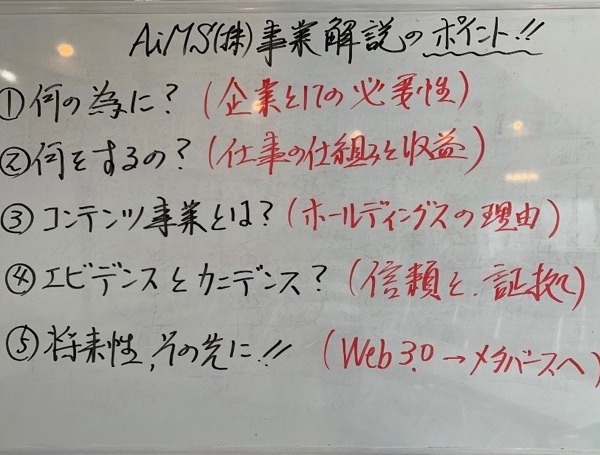 AiMS(株)事業解説のポイント!!
①何の為に?(企業としての必要性)
②何をするの?(仕事の仕組みと収益)
③コンテンツ事業とは?(ホールディングスの理由)
④エビデンスとカニデンス?(信頼と、証拠)
⑤将来性、その先に!!(Web3.0→メタバースへ)